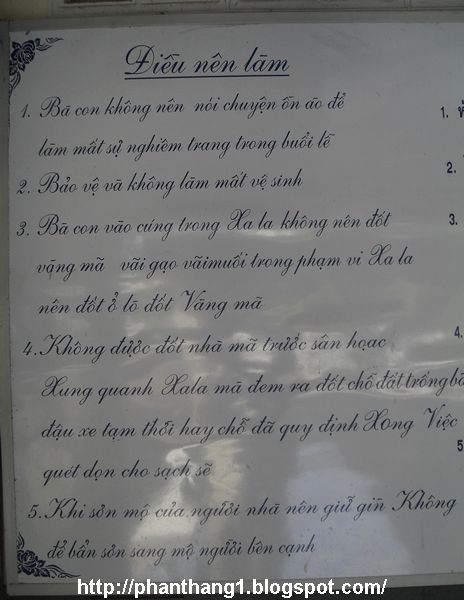 Điều nên làm
1. Bà con không nên nói chuyện ồn ào để
làm mất sự nghiêm trang trong buổi lễ
2. Bảo vệ và không làm mất vệ sinh
3. Bà con vào cúng trong Xa la không nên đốt
vàng mã vãi gạo vãi muối trong phạm vi Xa la
nên đốt ở lò đốt Vàng mã
4. Không được đốt nhà mã trước sân họac
Xung quanh Xala mà đem ra đốt chỗ đất trống bã
đậu xe tạm thời hay chỗ đã quy định Xong Việc
quét dọn cho sạch sẽ
5. Khi sơn mộ của người nhà nên giữ gìn Không
để bẩn sơn sang mộ người bên cạnh
1.
2.
3.
4.
5
http://phanthang1.blogspot.com/